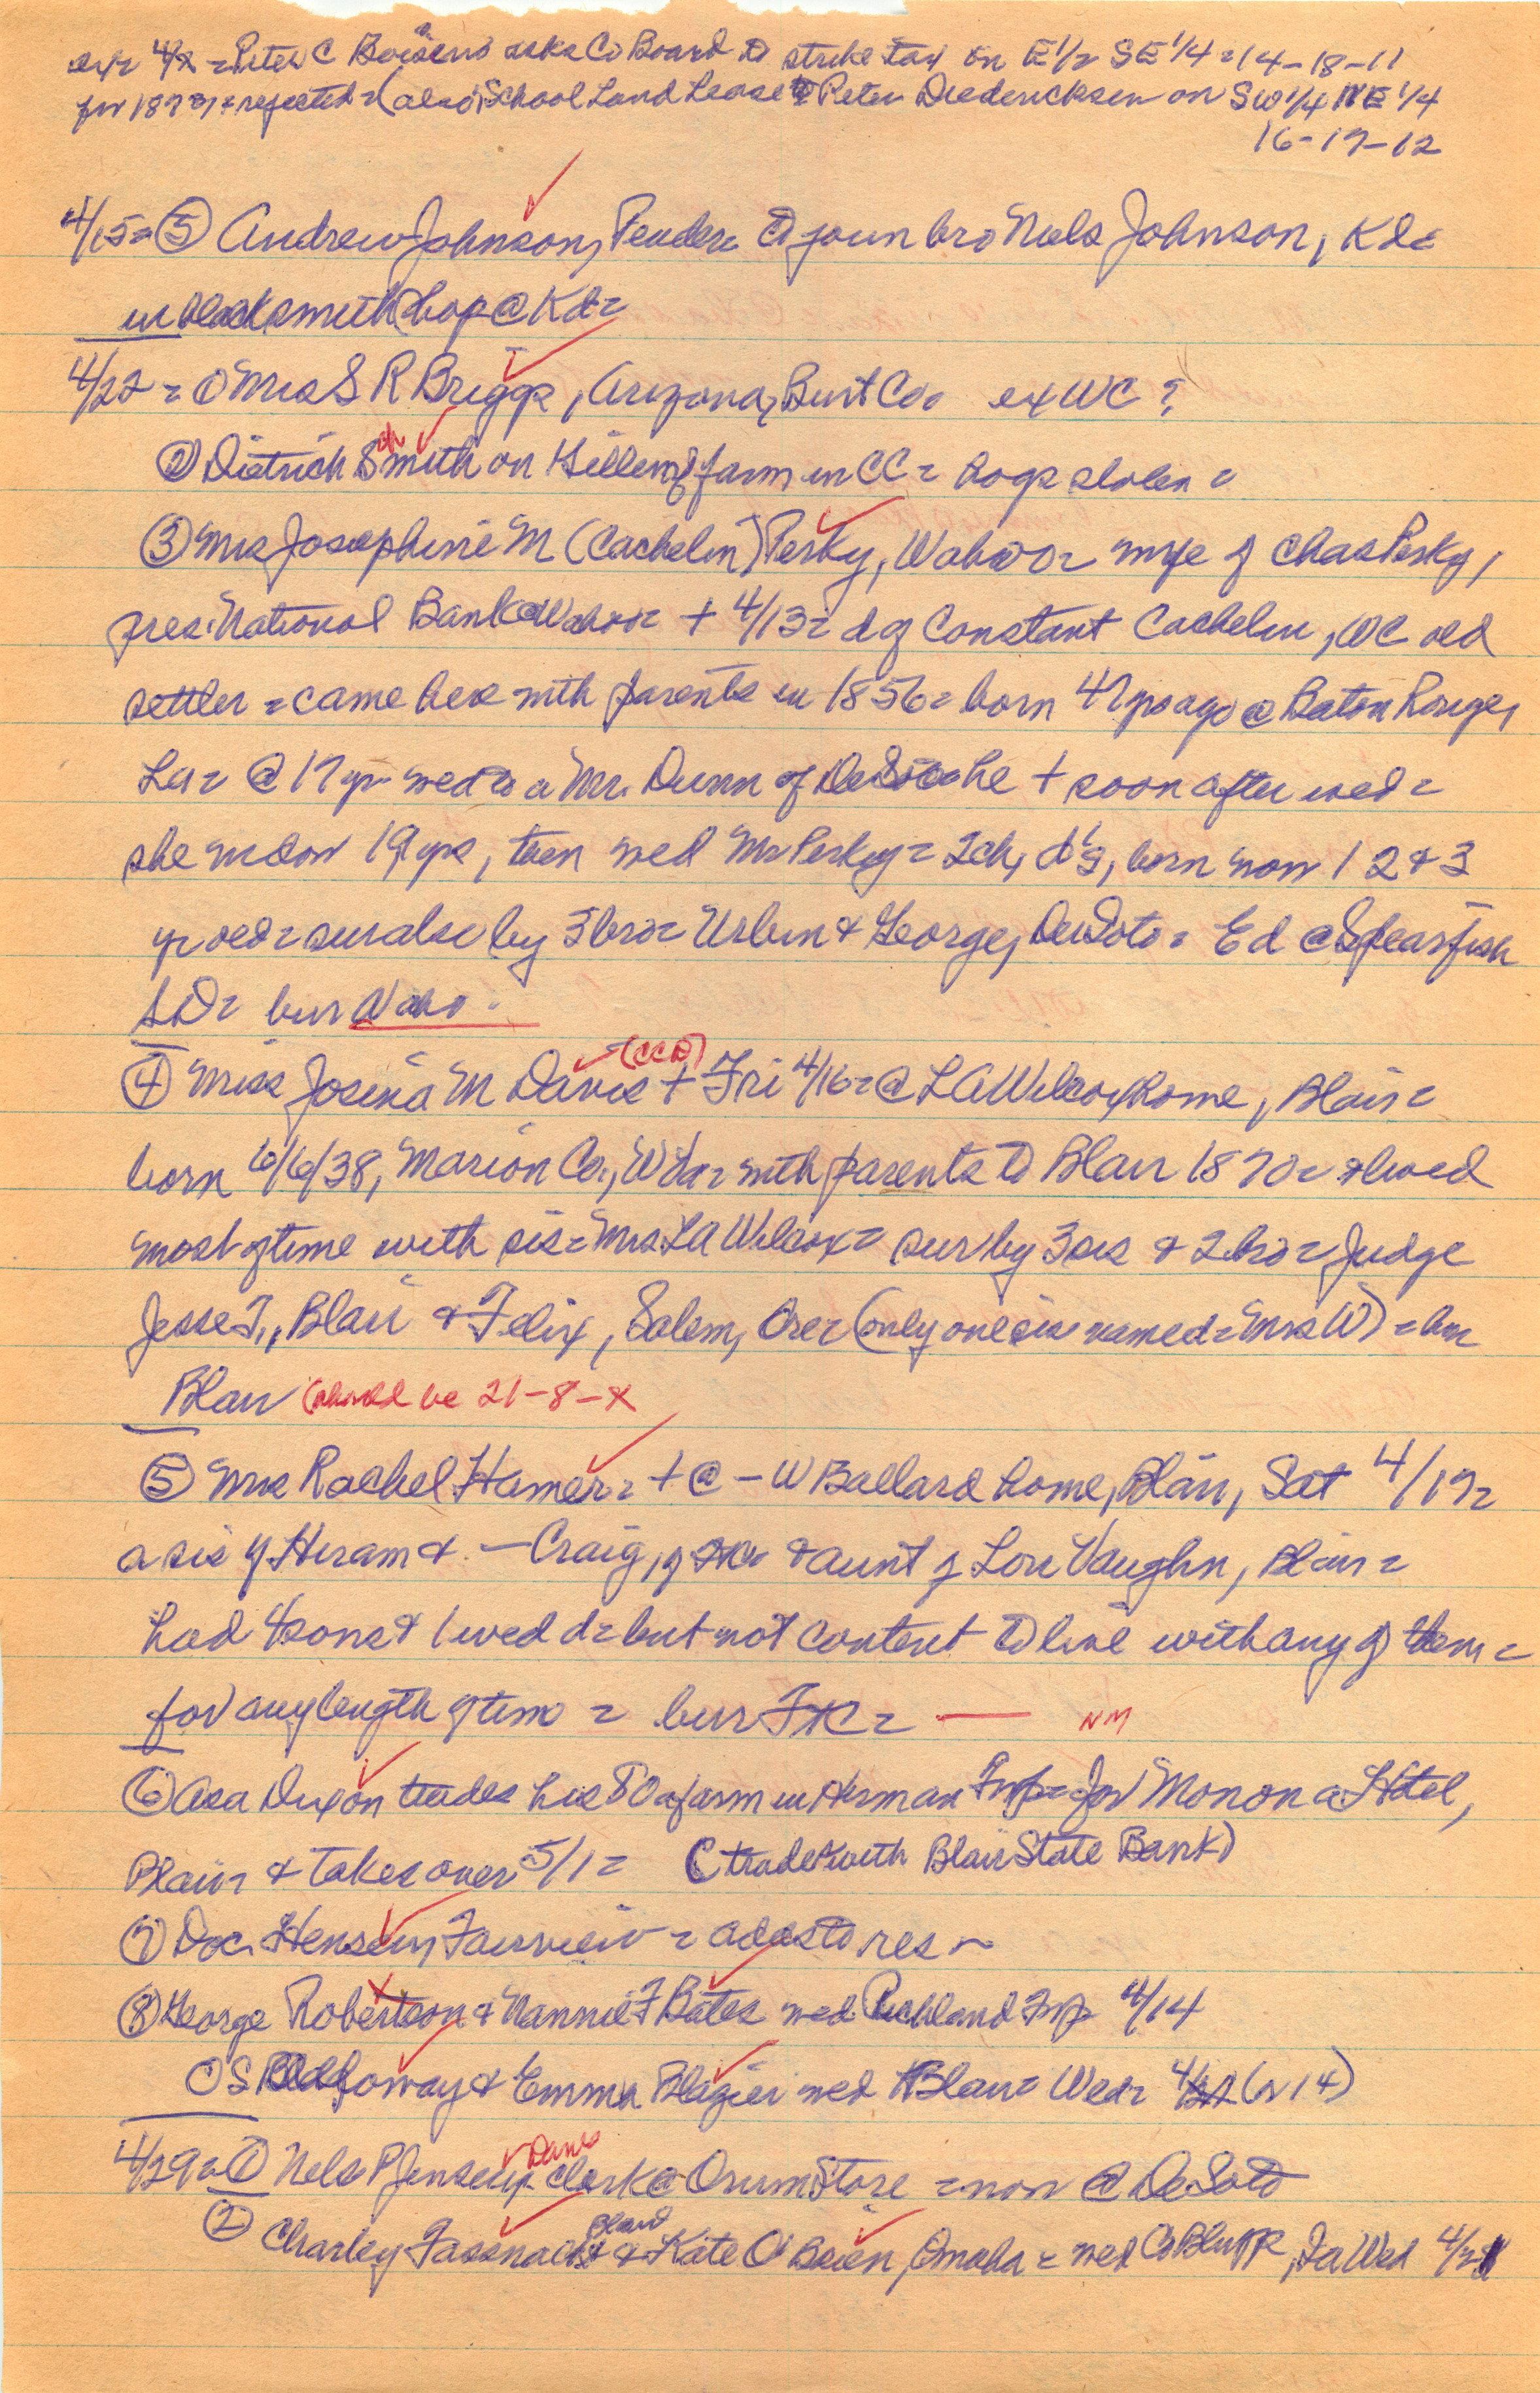 4/8 = Peter C Boisens asks Co Board to strike tax on E 1/2 SE 1/4 = 14-18-11
for 1873 = rejected = (also School Land Lease to Peter Diedericksen on SW 1/4 NE 1/4
16-17-12
4/15 = ⑤ Andrew Johnson, Pender = to join bro Nels Johnson, Kd =
in blacksmith shop @ Kd =
4/22 = ① Mrs S R Briggs, Arizona, Burt Co = ex WC ?
② Dietrich Smith on farm in CC = hogs stolen =
③ Mrs Josephine M (Cachelin) Perky, Wahoo = wife of Chas Perky,
pres. National Bank @ Wahoo = + 4/13 = d of Constant Cachelin, WC old
settler = came here with parents in 1856 = born 47 yrs ago @ Baton Rouge,
La = @ 17 yr wed to a Mr. Dunn of DeSoto = he + soon after wed =
she widow 19 yrs, then wed Mr Perky = 2 ch, d's, born now 12 & 3
yr old = sur also by 3 bro = Urbin & George, DeSoto = Ed @ Spearfish
SD = bur Waho.
(CCD)
④ Miss Josina M Davis + Fri 4/16 = @ L A Wilcox home, Blair =
born 6/6/38, Marion Co, W Va = with parents to Blair 1870 = & lived
most of time with sis = Mrs. L A Wilcox = sur by 3 sis & 2 bro = Judge
Jesse T., Blair & Felix, Salem, Ore = (only one sis named = Mrs W) = bur
Blair (should be 21-8-x
⑤ Mrs Rachel Hamer = + @ — W Ballard home, Blair, Sat 4/17 =
a sis of Hiram & — Craig, of FtC = & aunt of Lon Vaughn, Blair =
had 4 sons & 1 wed d = but not content to live with any of them =
for any length of time = bur FtC = — NM
⑥ Asa Dixon trades his 80 a farm in Herman Twp = for Monona Hotel,
Blair = & takes over 5/1 = (trades with Blair State Bank)
⑦ Doc. Hensen, Fairview = adds to res ~
⑧ George Robertson & Nannie F Bates wed Richland Twp 4/14
O S Holloway & Emma Blazier wed Blair = Wed = 4/21 (or 14)
Dan's
4/29 = ① Nels P Jensen, clerk @ Orum Store = now @ DeSoto
Blair
② Charley Fassnacht & Kate O'Brien, Omaha = wed Co Bluffs, Ia Wed 4/21